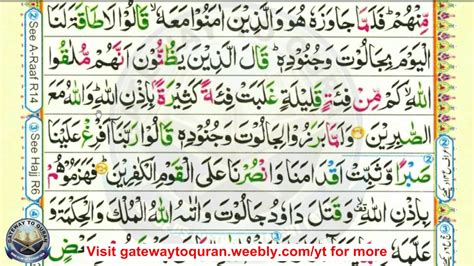 مِّنْهُمْ ؕ فَلَمَّا جَاوَزَهٗ هُوَ وَالَّذِيْنَ اٰمَنُوْا مَعَهٗ ۙ قَالُوْا لَا طَاقَةَ لَنَا
الْيَوْمَ بِجَالُوْتَ وَجُنُوْدِهٖ ؕ قَالَ الَّذِيْنَ يَظُنُّوْنَ اَنَّهُمْ مُّلٰقُوا
اللّٰهِ ۙ كَمْ مِّنْ فِئَةٍ قَلِيْلَةٍ غَلَبَتْ فِئَةً كَثِيْرَةًۢ بِاِذْنِ اللّٰهِ ؕ وَاللّٰهُ مَعَ
الصّٰبِرِيْنَ وَلَمَّا بَرَزُوْا لِجَالُوْتَ وَجُنُوْدِهٖ قَالُوْا رَبَّنَاۤ اَفْرِغْ عَلَيْنَا
صَبْرًا وَّثَبِّتْ اَقْدَامَنَا وَانْصُرْنَا عَلَى الْقَوْمِ الْكٰفِرِيْنَ ؕ فَهَزَمُوْهُمْ
بِاِذْنِ اللّٰهِ ۙ وَقَتَلَ دَاوٗدُ جَالُوْتَ وَاٰتٰىهُ اللّٰهُ الْمُلْكَ وَالْحِكْمَةَ
See A-Raaf R14
See Hajj R6
GATEWAY TO QURAN
Visit gatewaytoquran.weebly.com/yt for more